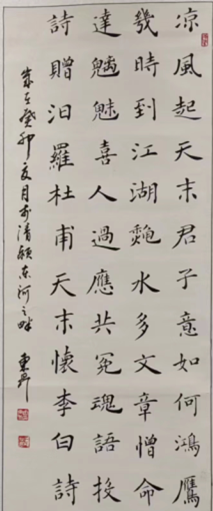 凉風起天末君子意如何鴻鴈
幾時到江湖龝水多文章憎命
達魑魅喜人過應共冤魂語投
詩贈汨羅杜甫天末懷李白詩
歲在癸卯夏月於清東河之畔 東昇